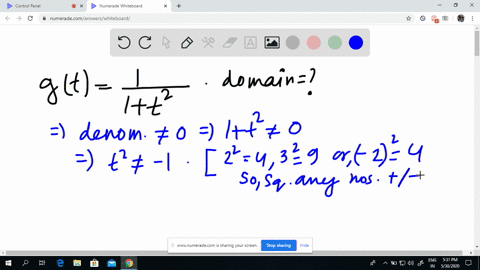 Control Panel
Numerade Whiteboard
numerade.com/answers/whiteboard/
g(t) = 1/(1+t²) . domain=?
=> denom. ≠ 0 => 1+t² ≠ 0
=> t² ≠ -1 . [ 2² = 4, 3² = 9 or, (-2)² = 4
so, sq. any nos. +/-
www.numerade.com is sharing your screen.
Stop sharing
Hide
5:31 PM
5/30/2020